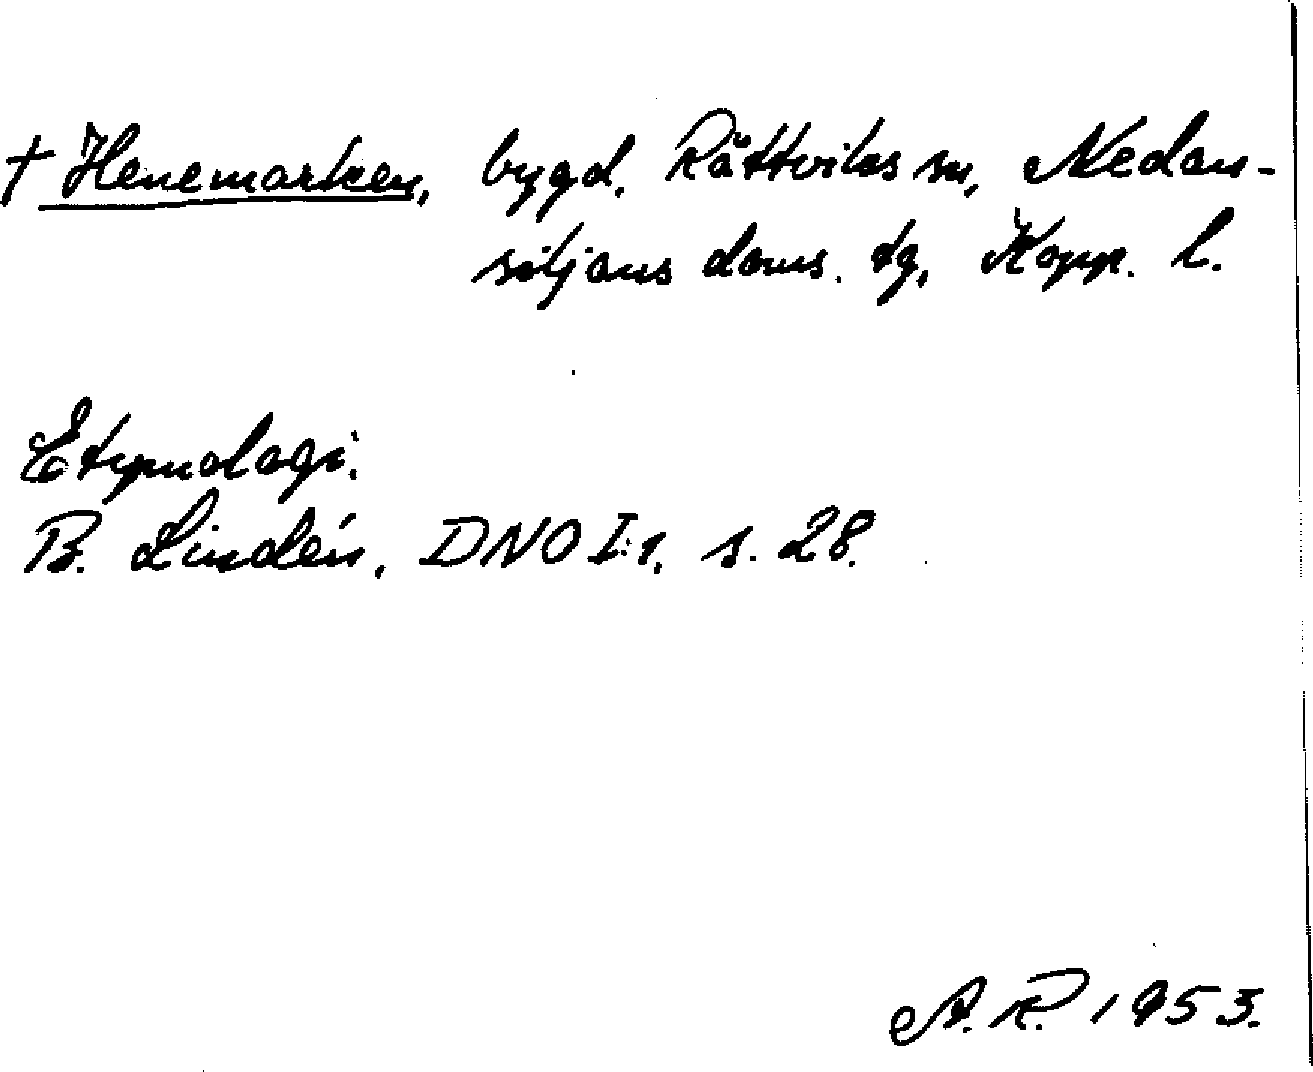 † Henemarken, bygd, Rättviks sn, Nedan-
siljans doms. tg, Kopp. l.
Etymologi:
B. Lindén, DNO I:1, s. 28.
A. R. 1953.